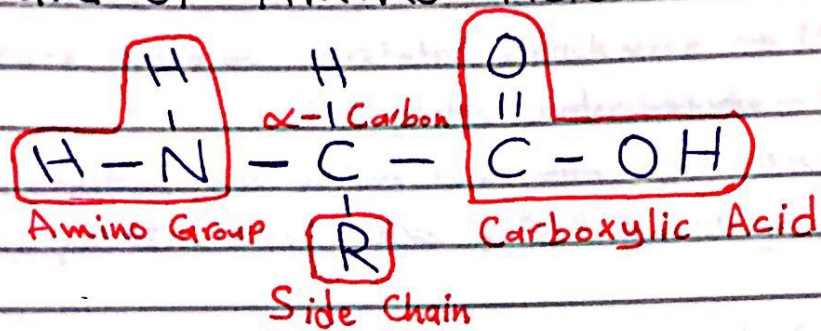 H H O
α-Carbon
H - N - C - C - OH
Amino Group R Carboxylic Acid
Side Chain